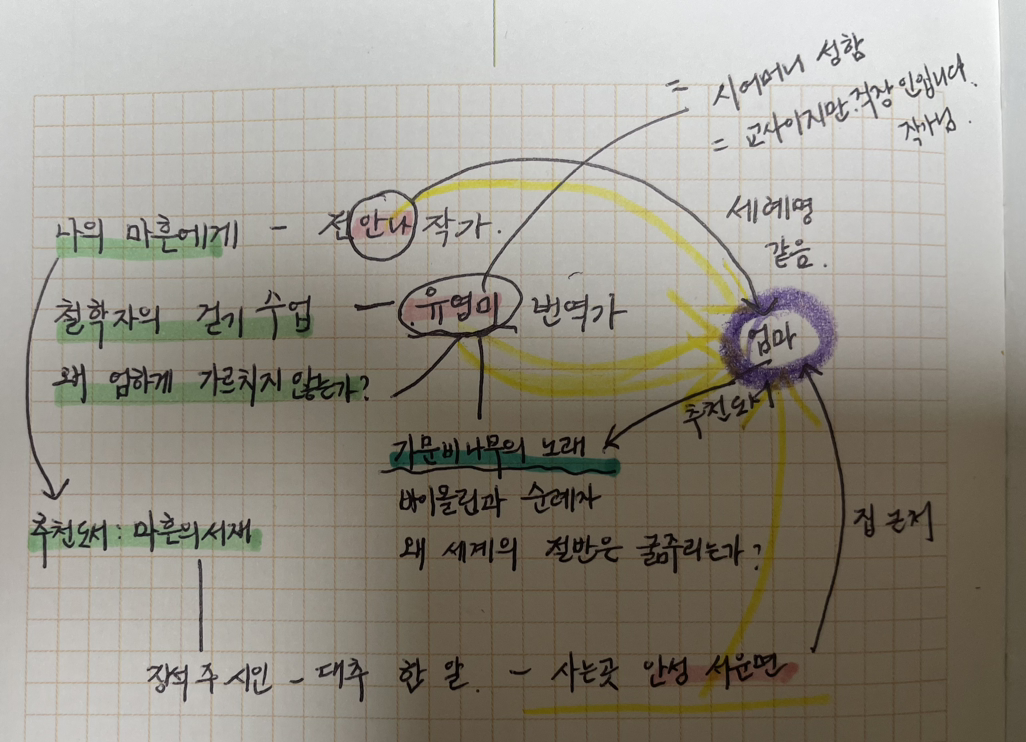 = 시어머니 성함
= 교사이지만 직장인입니다.
작가님.
세례명
같음.
나의 마흔에게 - 전안나 작가.
철학자의 걷기 수업 - 유영미 번역가
왜 엄하게 가르치지 않는가?
엄마
추천도서
가문비나무의 노래
바이올린과 순례자
왜 세계의 절반은 굶주리는가?
집 근처
추천도서 : 마흔의 서재
장석주 시인 - 대추 한 알. - 사는곳 안성 서운면